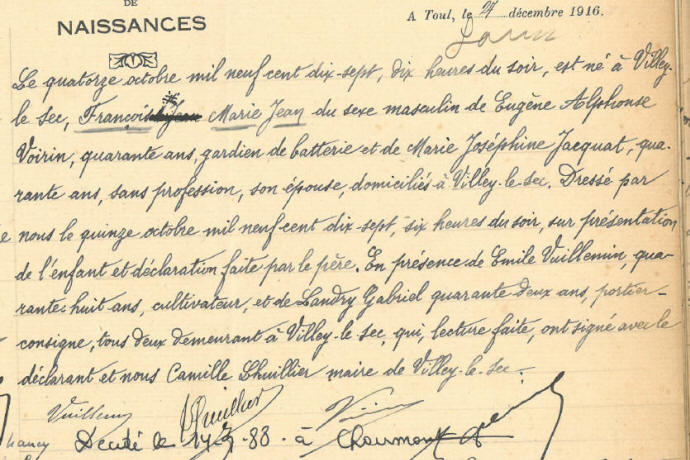 DE
NAISSANCES
A Toul, le 27 décembre 1916.
Le quatorze octobre mil neuf cent dix-sept, dix heures du soir, est né à Villey-
le Sec, François Jean Marie Jean du sexe masculin de Eugène Alphonse
Voirin, quarante ans, gardien de batterie et de Marie Joséphine Jacquat, qua-
rante ans, sans profession, son épouse, domiciliés à Villey-le-Sec. Dressé par
nous le quinze octobre mil neuf cent dix-sept, six heures du soir, sur présentation
de l'enfant et déclaration faite par le père. En présence de Emile Vuillemin, qua-
rante-huit ans, cultivateur, et de Landry Gabriel quarante deux ans, portier-
consigne, tous deux demeurant à Villey-le-Sec, qui, lecture faite, ont signé avec le
déclarant et nous Camille Lhuillier maire de Villey-le-Sec.
Vuillemin Lhuillier
Décédé le 88 à Chaumont